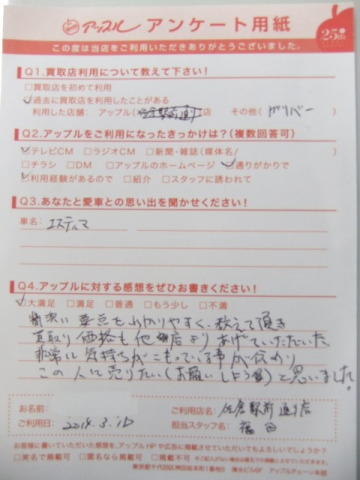 アップル アンケート用紙 25th
この度は当店をご利用いただきありがとうございました。
Q1.買取店利用について教えて下さい!
□買取店を初めて利用
☑過去に買取店を利用したことがある
利用した店舗: アップル( 店 その他( ガリバー
Q2.アップルをご利用になったきっかけは?(複数回答可)
☑テレビCM □ラジオCM □新聞・雑誌(媒体名/ )
□チラシ □DM □アップルのホームページ ☑通りがかりで
☑利用経験があるので □紹介 □スタッフに誘われて
Q3.あなたと愛車との思い出を聞かせください!
車名: エスティマ
Q4.アップルに対する感想をぜひお書きください!
☑大満足 □満足 □普通 □もう少し □不満
要点をわかりやすく、教えて頂き
買取り価格も他店よりあげていただいた。
非常に気持ちがこもっている事が伝わり
この人に売りたい(お願いしよう)と思いました。
お名前:
ご利用日:
ご利用店名: 佐倉駅前通り店
担当スタッフ名: 福田
お客様に書いていただいた感想を、アップルHPや広告に掲載させていただいてもよろしいでしょうか?
□実名で掲載可 □匿名なら掲載可 □掲載不可